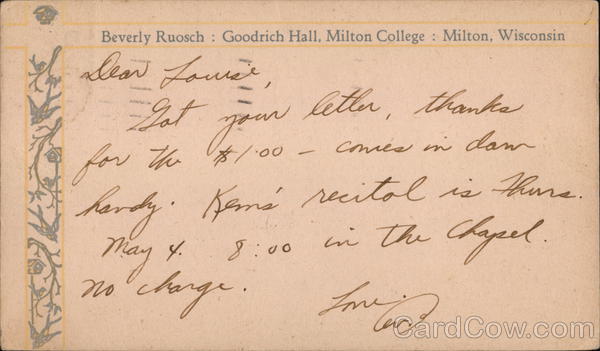 Beverly Ruosch : Goodrich Hall, Milton College : Milton, Wisconsin
Dear Louise,
Got your letter, thanks
for the $1.00 – comes in darn
handy. Kem's recital is Thurs.
May 4. 8:00 in the Chapel.
no charge.
Love,
Bev.
CardCow.com